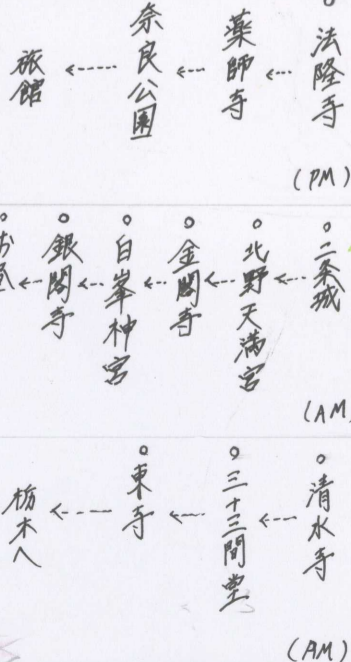 法隆寺
薬師寺
奈良公園
旅館
(PM)
二条城
北野天満宮
金閣寺
白峯神宮
銀閣寺
お昼
(AM)
清水寺
三十三間堂
東寺
栃木へ
(AM)